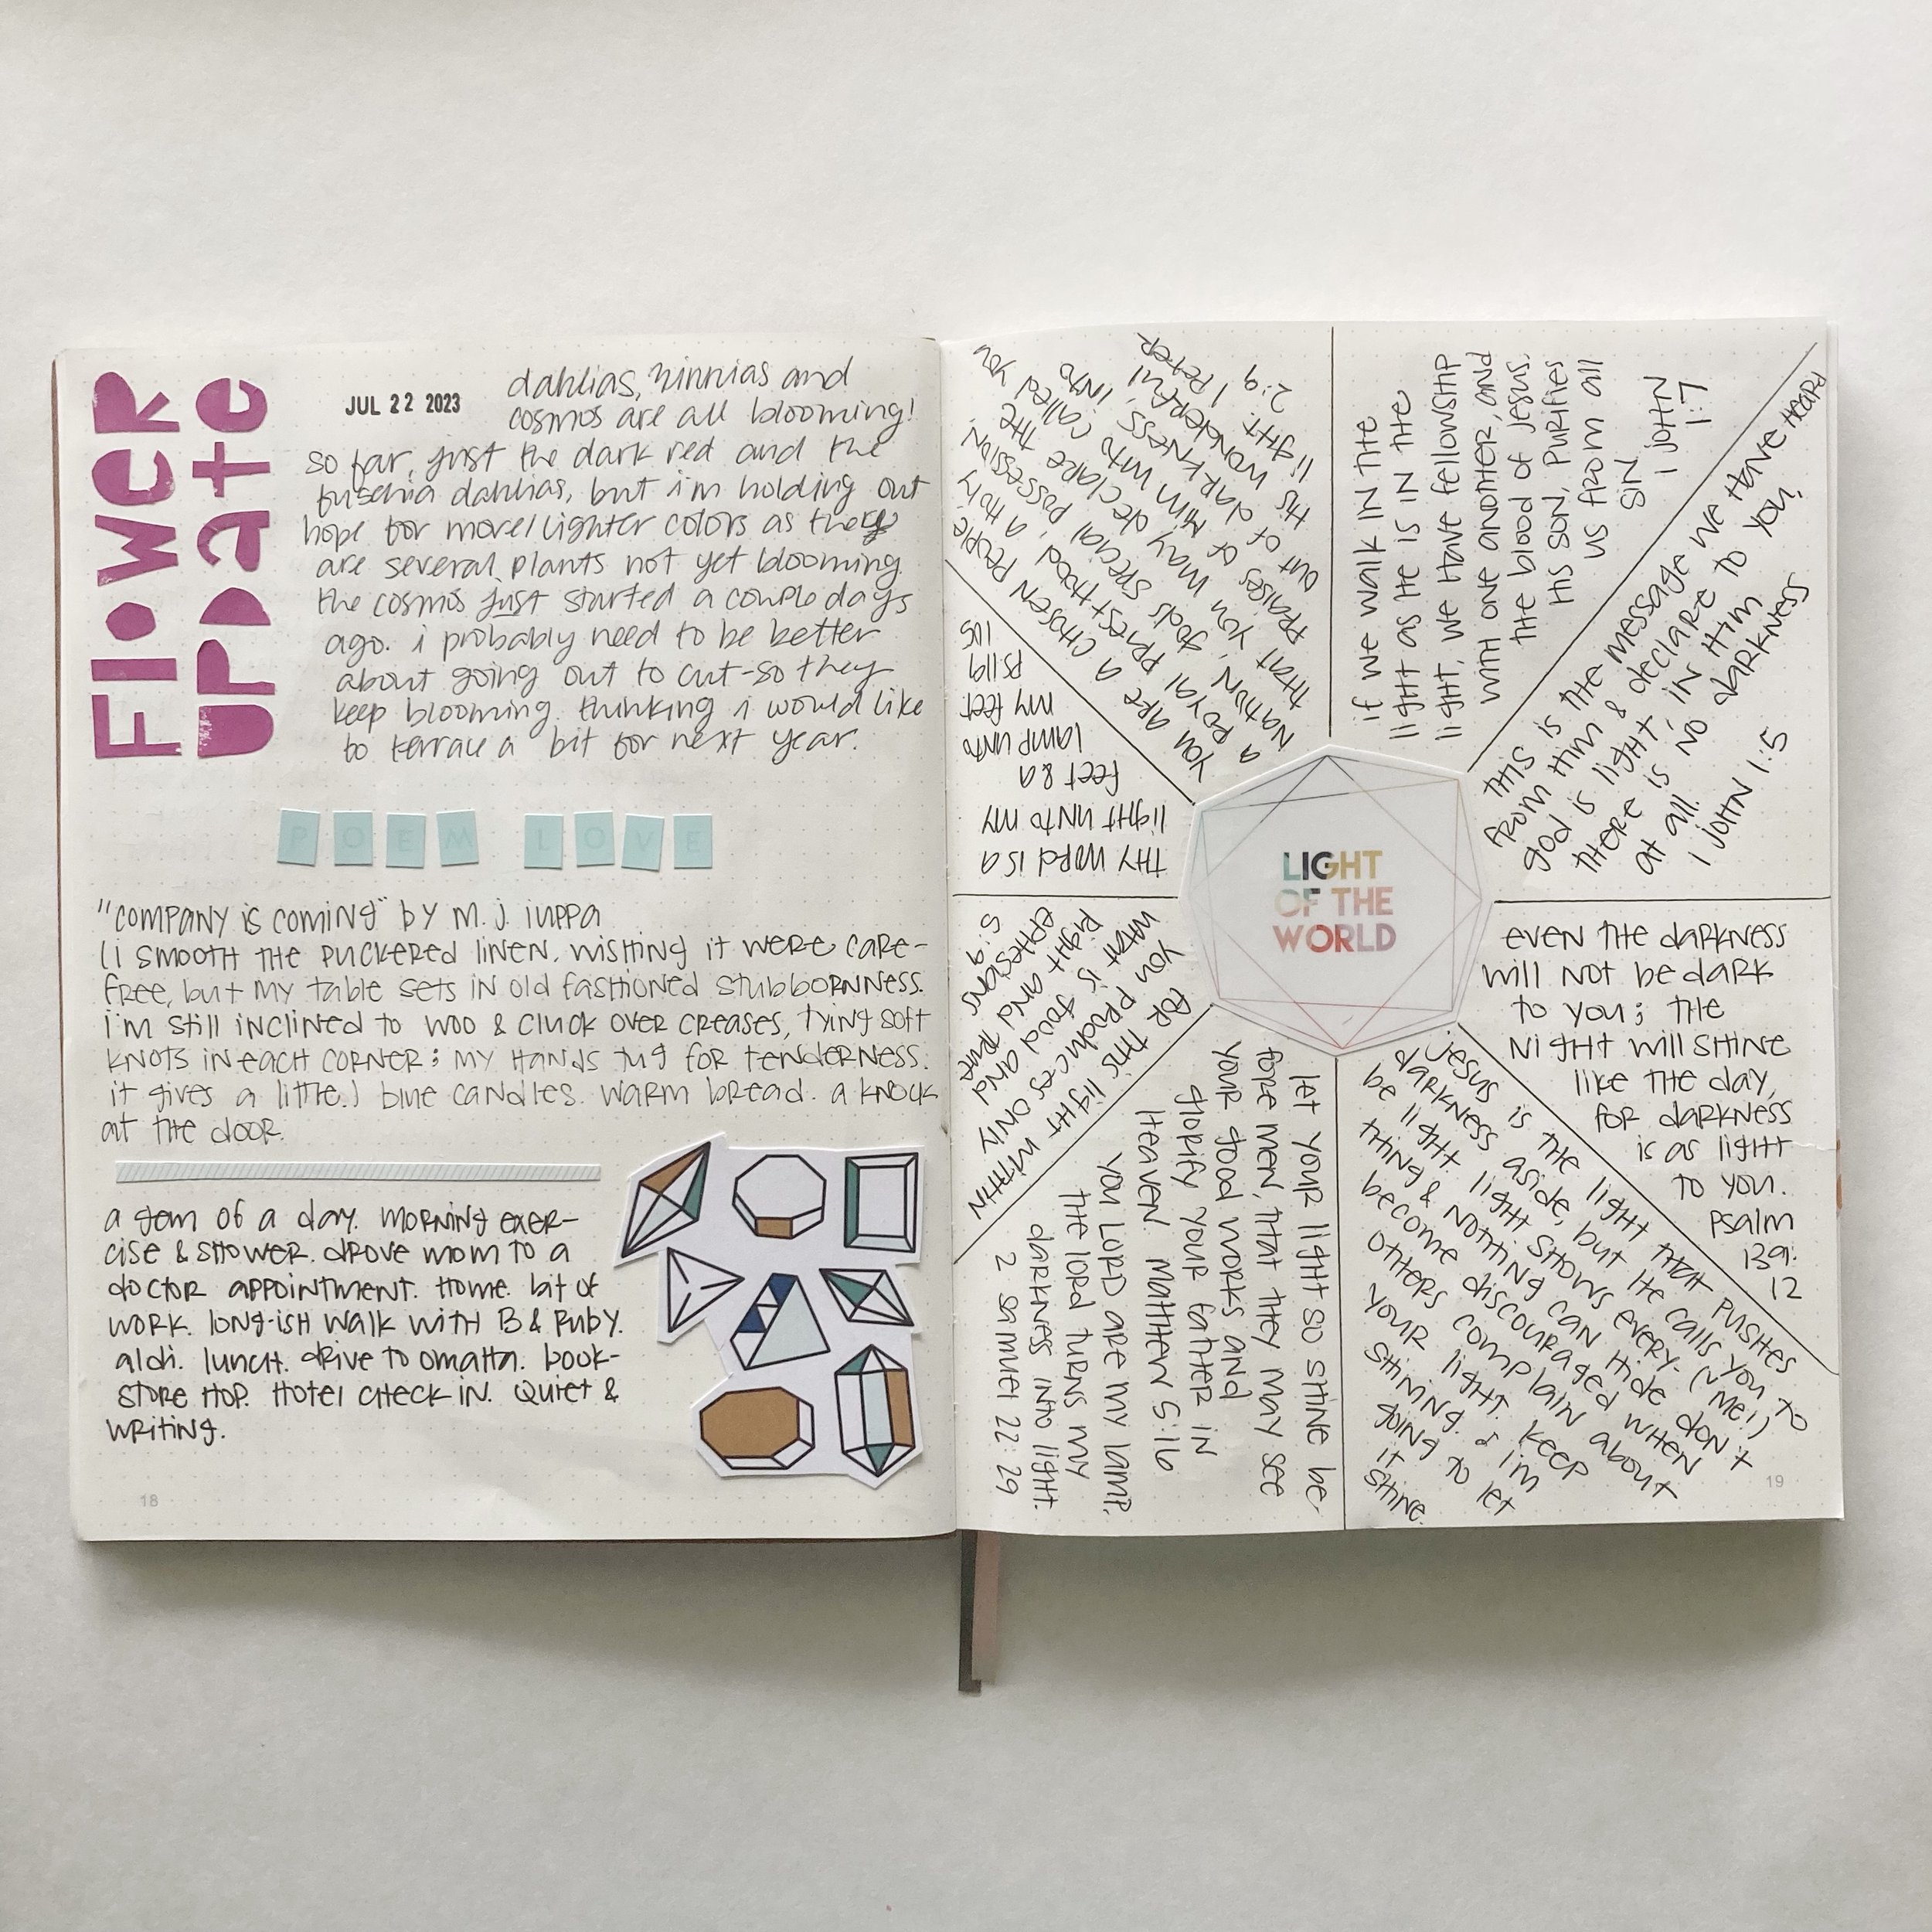 Flower
Update
JUL 22 2023
dahlias, zinnias and
cosmos are all blooming!
so far, just the dark red and the
fuschia dahlias, but i'm holding out
hope for more/lighter colors as there
are several plants not yet blooming.
the cosmos just started a couple days
ago. i probably need to be better
about going out to cut-so they
keep blooming. thinking i would like
to terrace a bit for next year.
POEM LOVE
"company is coming" by m. j. iuppa
(i smooth the puckered linen, wishing it were care-
free, but my table sets in old fashioned stubbornness.
i'm still inclined to woo & cluck over creases, tying soft
knots in each corner; my hands tug for tenderness.
it gives a little.) blue candles. warm bread. a knock
at the door.
a gem of a day. morning exer-
cise & shower. drove mom to a
doctor appointment. home. bit of
work. long-ish walk with B & Ruby.
aldi. lunch. drive to omaha. book-
store hop. hotel check in. quiet &
writing.
18
LIGHT
OF THE
WORLD
if we walk in the
light as he is in the
light, we have fellowship
with one another, and
the blood of jesus,
his son, purifies
us from all
sin
1 john
1:7
this is the message we have heard
from him & declare to you,
god is light, in him
there is no darkness
at all.
1 john 1:5
even the darkness
will not be dark
to you; the
night will shine
like the day,
for darkness
is as light
to you.
psalm
139:
12
jesus is the light that pushes
darkness aside, but he calls you to
be light. light shows every- (~me!)
thing & nothing can hide don't
become discouraged when
others complain about
your light. keep
shining. & i'm
going to let
it
shine.
let your light so shine be-
fore men, that they may see
your good works and
glorify your father in
heaven. matthew 5:16
you LORD are my lamp.
the lord turns my
darkness into light.
2 samuel 22:29
for this light within
you produces only
what is good and
right and true
ephesians
5:9
thy word is a
light unto my
feet & a
lamp unto
my feet.
ps 119
105
you are a chosen people
a royal priesthood, a holy
nation, gods special possession,
that you may declare the
praises of him who called you
out of darkness into
his wonderful
light. 1 peter
2:9
19